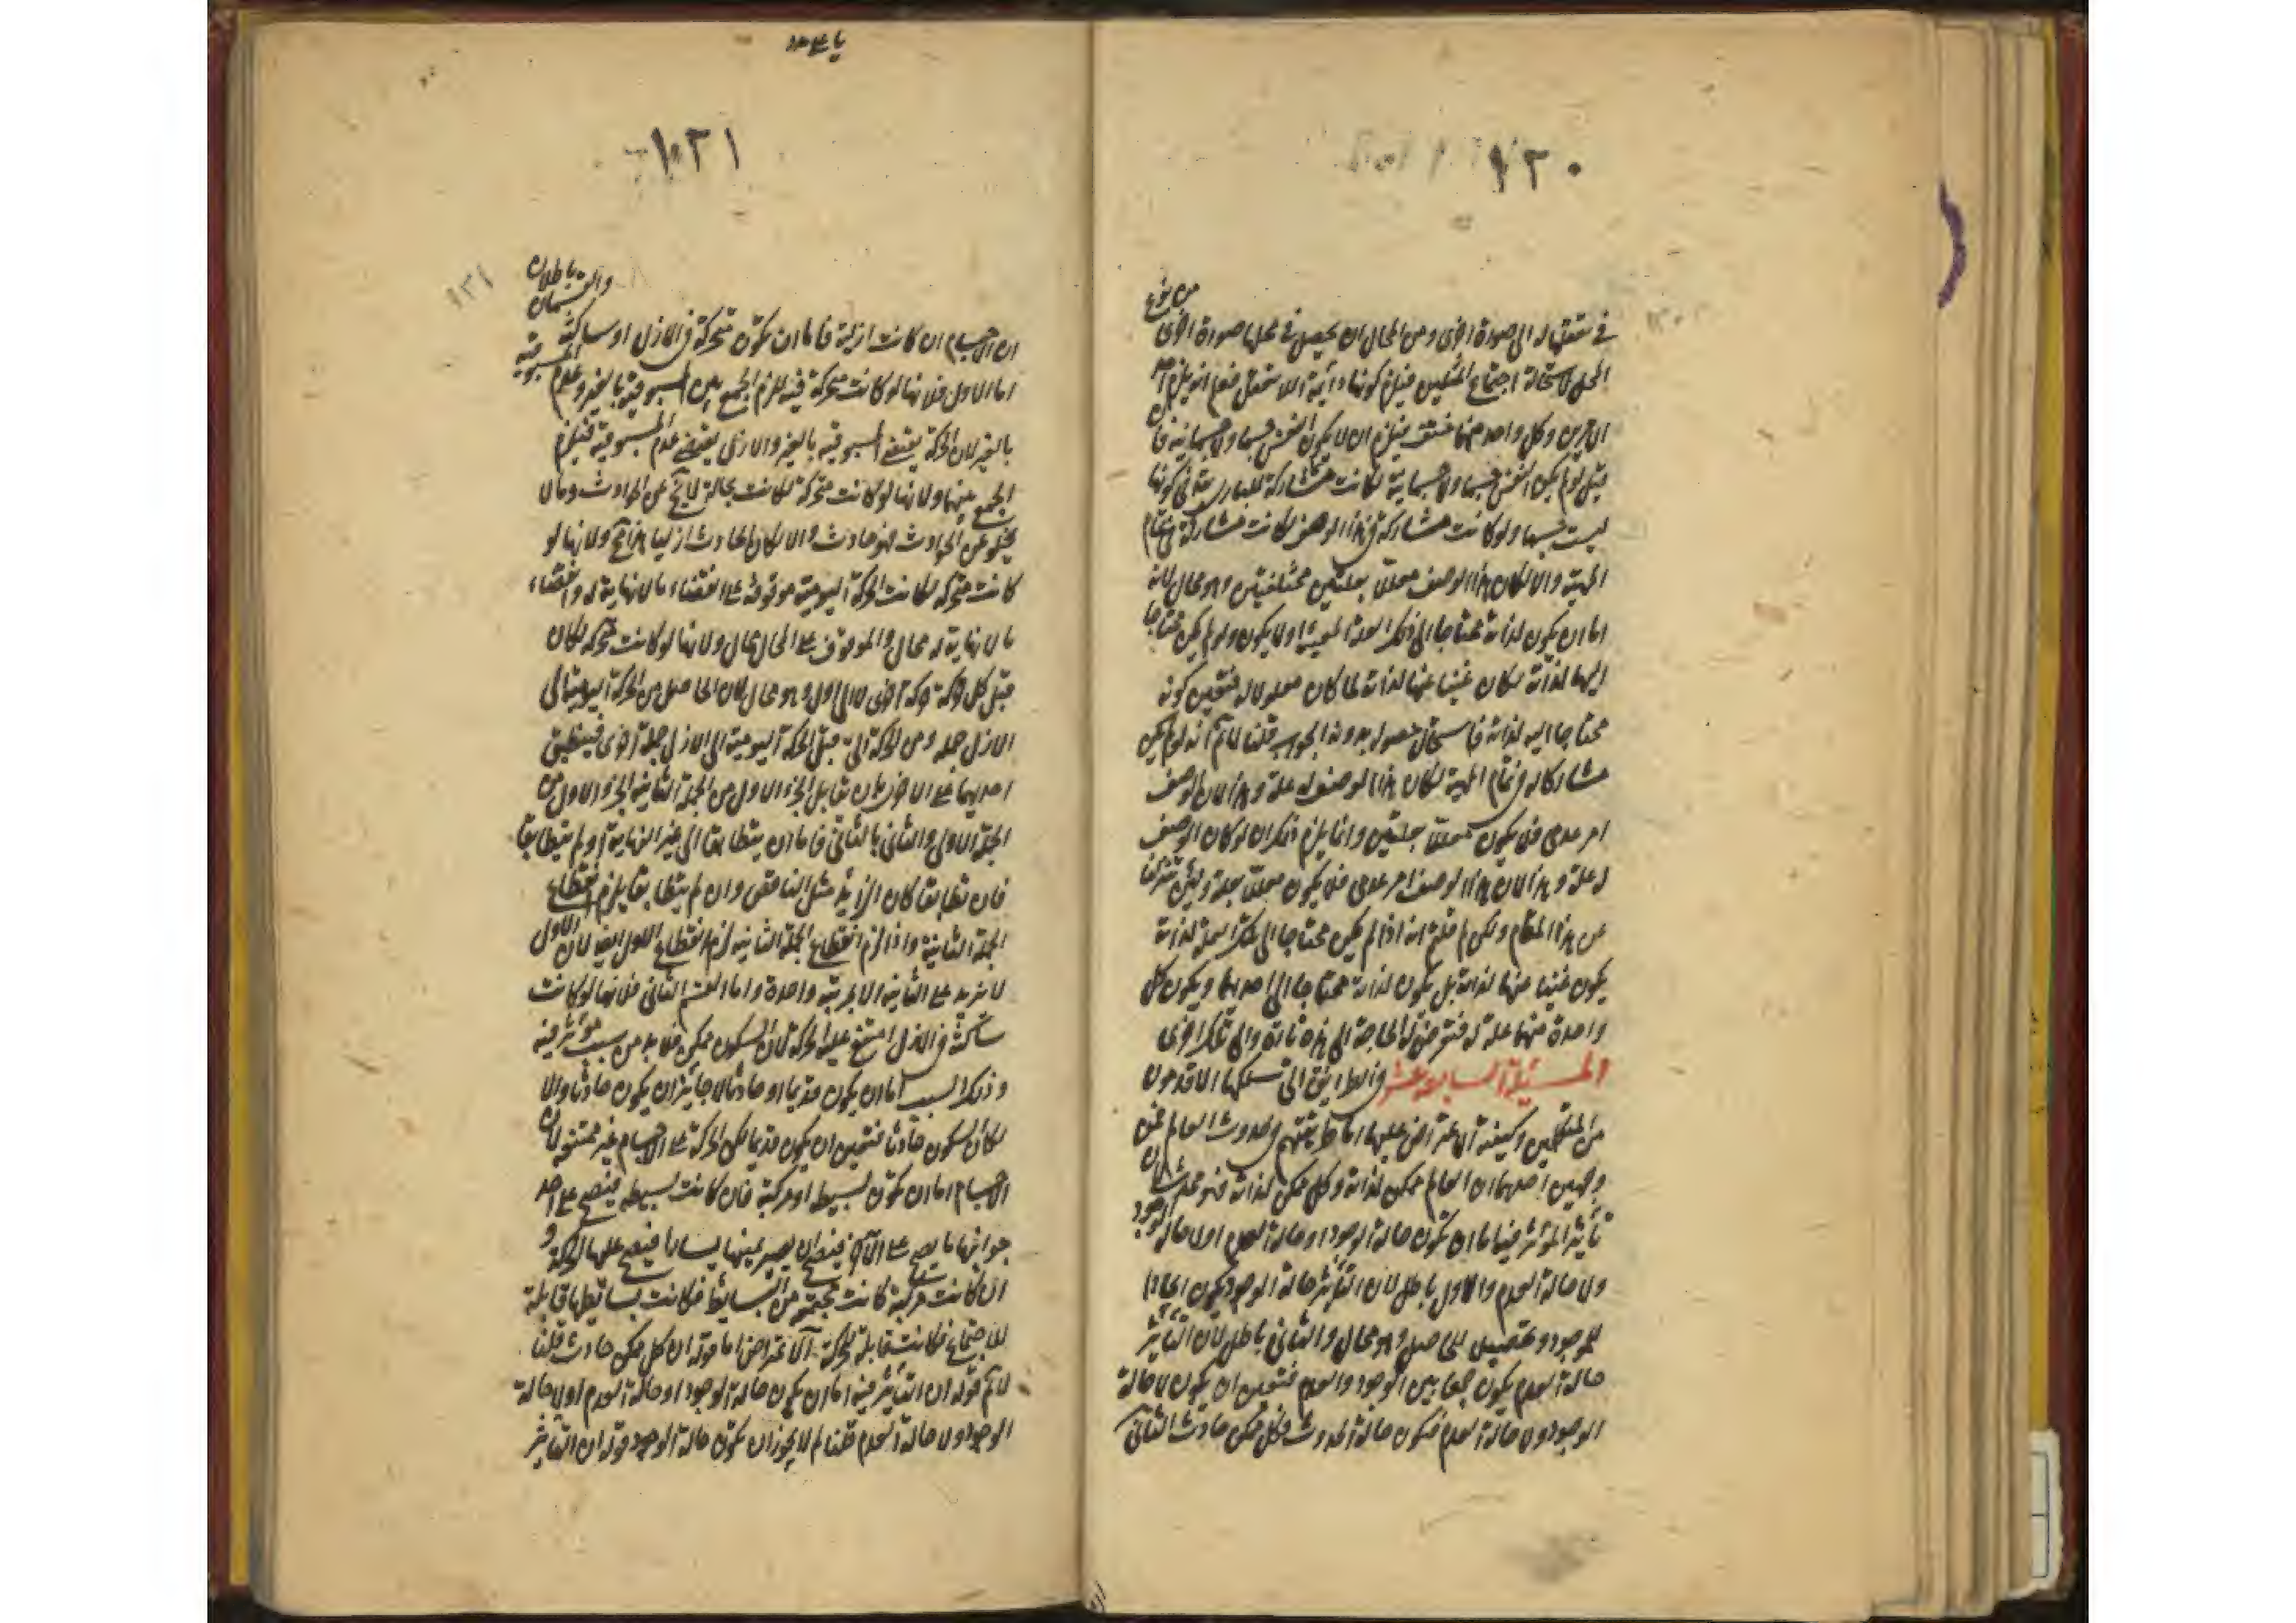 ١٢٠
من نوع
فى تعقلها له الى صورة اخرى ومن المحال ان يحصل فى محلها صورة اخرى
المحل لاستحالة اجتماع المثلين فيلزم كونها دائمة اللا تعقل فعلم انه يلزم احد
الامرين وكل واحد منهما منتف فيلزم ان لا يكون النفس جسما ولا جسمانية فان
قيل لو لم يكن النفس جسما ولا جسمانية لكانت مشاركة للبارى تعالى فى كونها
ليست جسما ولو كانت مشاركة فى هذا الوصف لكانت مشاركة فى تمام
المهية والا لكان هذا الوصف معللا بعلتين مختلفتين وهو محال لانه
اما ان يكون لذاته محتاجا الى تلك العلة المعينة او لا يكون ولو لم يكن محتاجا
اليها لذاته لكان غنيا عنها لذاته لما كان معلولا له فتعين كونه
محتاجا اليه لذاته فاستحال حصوله بدونه الجواب قلنا لا نم انه لو لم يكن
مشاركا له فى تمام المهية لكان هذا الوصف له علة وهذا لان الوصف
امر عدمى فلا يكون معللا بعلتين وانما يلزم ذلك ان لو كان الوصف
له علة وهذا لان هذا الوصف امر عدمى فلا يكون معللا بعلة ولئن نزلنا
عن هذا المقام ولكن لم قلتم انه اذا لم يكن محتاجا الى تلك العلة لذاته
يكون غنيا عنها لذاته بل يكون لذاته محتاجا الى احدهما ويكون كل
واحدة منهما علة له فتعرض له الحاجة الى هذه تارة والى تلك اخرى
المسئلة السابعة عشر فى الطرايق التى تسلكها الاقدمون
من المتكلمين وكيفية الاعتراض عليها اما طريقتهم فى حدوث العالم فمن
وجهين احدهما ان العالم ممكن لذاته وكل ممكن لذاته فهو محدث لان
تأثير المؤثر فيه اما ان يكون حالة الوجود او حالة العدم او لا حالة الوجود
ولا حالة العدم والاول باطل لان التأثير حالة الوجود يكون ايجادا
للموجود وتحصيل الحاصل وهو محال والثانى باطل لان التأثير
حالة العدم يكون جمعا بين الوجود والعدم فتعين ان يكون لا حالة
الوجود ولا حالة العدم فيكون حالة الحدوث فكل ممكن حادث الثانى
١٢١
والقسمان باطلان
ان الاجسام ان كانت ازلية فاما ان يكون متحركة فى الازل او ساكنة
اما الاول فلانها لو كانت متحركة فيه للزم الجمع بين المسبوقية بالغير وعدم المسبوقية
بالغير لان الحركة يقتضى المسبوقية بالغير والازلى يقتضى عدم المسبوقية فيلزم
الجمع بينهما ولانها لو كانت متحركة لكانت بحالة لا يخ عن الحوادث وما لا
يخلو عن الحوادث فهو حادث والا لكان الحادث ازليا هذا مح ولانها لو
كانت متحركة لكانت الحركة اليومية موقوفة على انقضاء ما لا نهاية له وانقضاء
ما لا نهاية له محال والموقوف على المحال محال ولانها لو كانت متحركة لكان
قبل كل حركة حركة اخرى لا الى اول وهو محال لان الحاصل من الحركة اليومية الى
الازل جملة ومن الحركة التى قبل الحركة اليومية الى الازل جملة اخرى فينطبق
احديهما على الاخرى بان تقابل الجزء الاول من الجملة الثانية بالجزء الاول من
الجملة الاولى والثانى بالثانى فاما ان يتطابقا الى غير النهاية او لم يتطابقا
فان تطابقا كان الزايد مثل الناقص وان لم يتطابقا يلزم انقطاع
الجملة الثانية واذا لزم انقطاع الجملة الثانية لزم انقطاع الاول ايضا لان الاول
لا يزيد على الثانية الا بمرتبة واحدة واما القسم الثانى فلانها لو كانت
ساكنة فى الازل امتنع عليها الحركة لان السكون ممكن فلا بد من سبب مؤثر فيه
وذلك السبب اما ان يكون قديما او حادثا لا جائز ان يكون حادثا والا
لكان السكون حادثا فتعين ان يكون قديما لكن الحركة على الاجسام غير ممتنعة لان
الاجسام اما ان يكون بسيطة او مركبة فان كانت بسيطة فيصح على احد
جوانبها ما يصح على الآخر فيصح ان يصير يمينها يسارا فيصح عليها الحركة و
ان كانت مركبة كانت مجتمعة من البسائط فكانت بسائطها قابلة
للاجتماع فكانت قابلة للحركة الاعتراض اما قوله ان كل ممكن حادث قلنا
لا نم قوله ان التأثير فيه اما ان يكون حالة الوجود او حالة العدم او لا حالة
الوجود ولا حالة العدم قلنا لم لا يجوز ان يكون حالة الوجود قوله ان التأثير